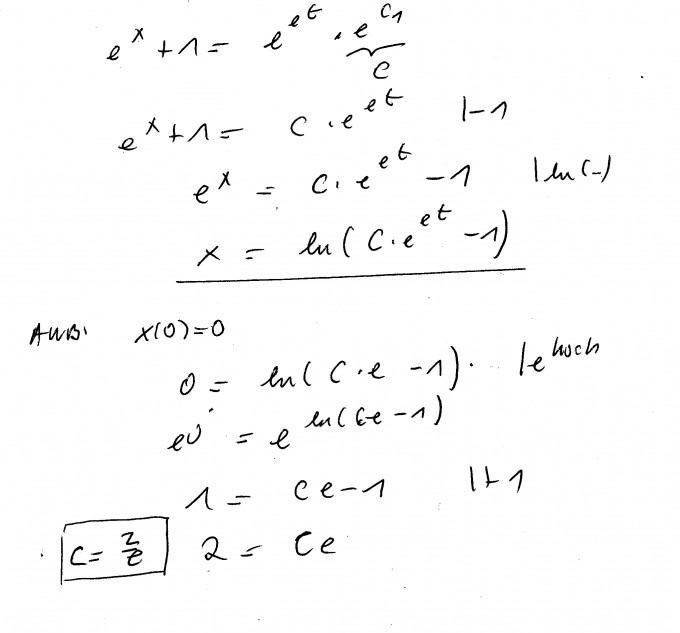 e^x + 1 = e^{e^t} · e^{C_1}
C
e^x + 1 = C · e^{e^t} |-1
e^x = C · e^{e^t} - 1 | ln(-)
x = ln(C · e^{e^t} - 1)
AWB: x(0)=0
0 = ln(C · e - 1) · |e^{hoch}
e^0 = e^{ln(Ce - 1)}
1 = Ce - 1 |+1
C = 2/e 2 = Ce